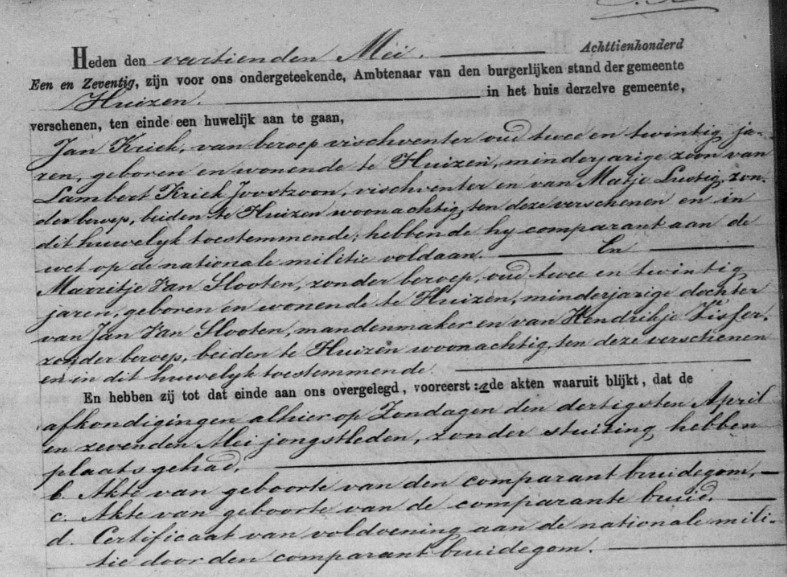 Heden den veertienden Mei. Achttienhonderd
Een en Zeventig, zijn voor ons ondergeteekende, Ambtenaar van den burgerlijken stand der gemeente
Huizen. in het huis derzelve gemeente,
verschenen, ten einde een huwelijk aan te gaan,
Jan Kriek, van beroep vischventer oud twee en twintig ja-
ren, geboren en wonende te Huizen, minderjarige zoon van
Lambert Kriek Joostzoon, vischventer en van Matje Lustig, zon-
der beroep, beiden te Huizen woonachtig, ten deze verschenen en in
dit huwelyk toestemmende; hebbende hy comparant aan de
wet op de nationale militie voldaan. En
Marritje Van Slooten, zonder beroep, oud twee en twintig
jaren, geboren en wonende te Huizen, minderjarige dochter
van Jan Van Slooten, mandenmaker en van Hendrikje Visser,
zonder beroep, beiden te Huizen woonachtig, ten deze verschenen
en in dit huwelyk toestemmende.
En hebben zij tot dat einde aan ons overgelegd, vooreerst: a de akten waaruit blijkt, dat de
afkondigingen alhier op Zondagen den dertigsten April
en zevenden Mei jongstleden, zonder stuiting hebben
plaats gehad.
b. Akte van geboorte van den comparant bruidegom.
c. Akte van geboorte van de comparante bruid.
d. Certificaat van voldoening aan de nationale mili-
tie door den comparant bruidegom.